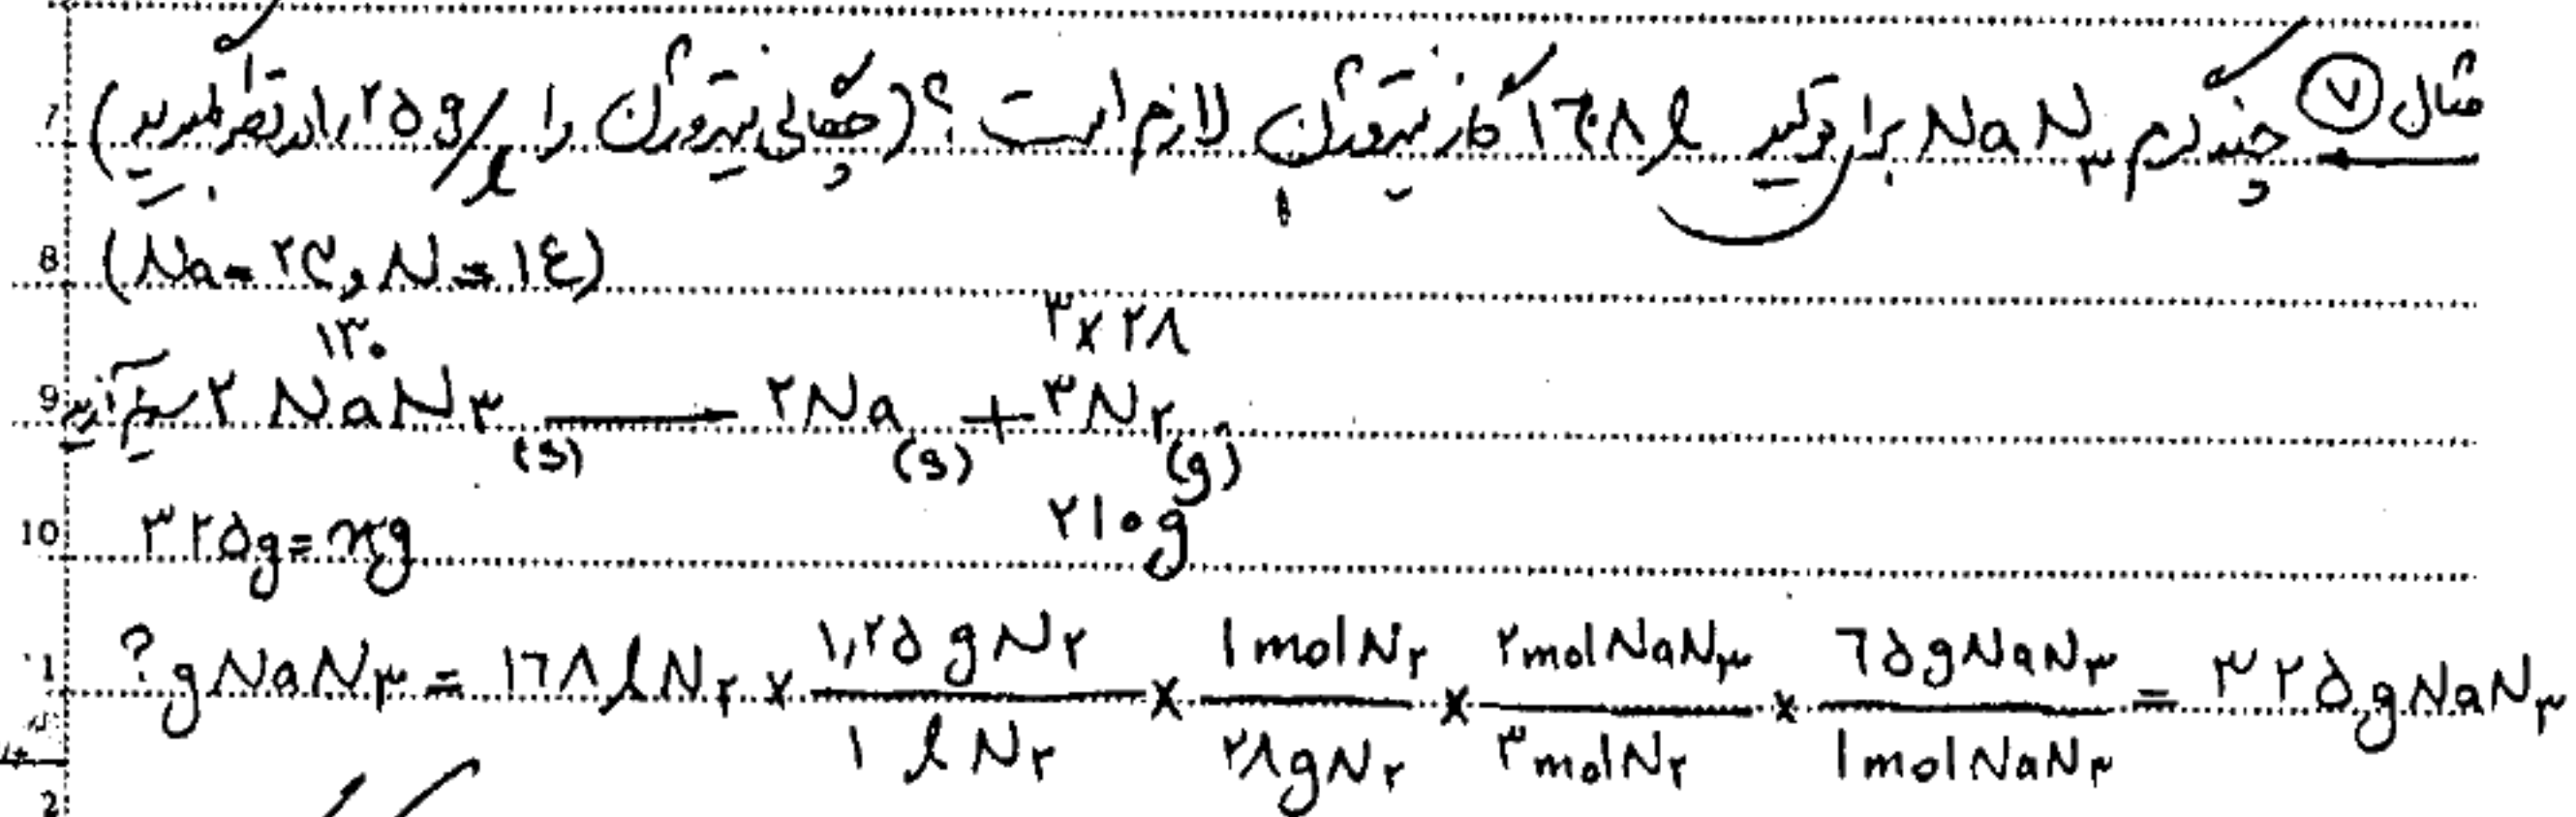 مثال ۷ چند گرم NaN۳ برای تولید ۱۶۸ l گاز نیتروژن لازم است؟ (چگالی نیتروژن را ۱٫۲۵ g/l در نظر بگیرید)
7
8 (Na = ۲۳, N = ۱۴)
۱۳۰ ۳×۲۸
9 ۲ NaN۳ (s) → ۲Na (s) + ۳N۲ (g)
10 ۳۲۵g = xg ۲۱۰g
11 ? g NaN۳ = ۱۶۸ l N۲ × ۱٫۲۵ g N۲ / ۱ l N۲ × ۱ mol N۲ / ۲۸ g N۲ × ۲ mol NaN۳ / ۳ mol N۲ × ۶۵ g NaN۳ / ۱ mol NaN۳ = ۳۲۵ g NaN۳
2